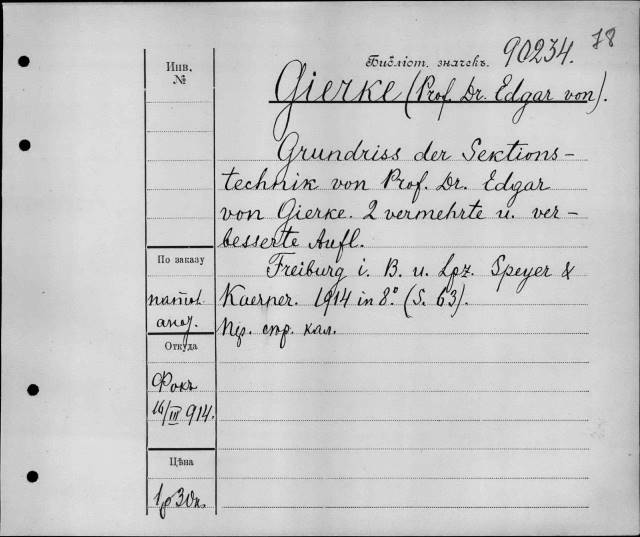 78
Библіот. значекъ. 90234.
Инв.
№
Gierke (Prof. Dr. Edgar von).
Grundriss der Sektions-
technik von Prof. Dr. Edgar
von Gierke. 2 vermehrte u. ver-
besserte Aufl.
Freiburg i. B. u. Lpz. Speyer &
Kaerner. 1914 in 8.º (S. 63).
стр. кал.
По заказу
Откуда
Фокъ
16/III 914.
Цѣна
1р 30к.